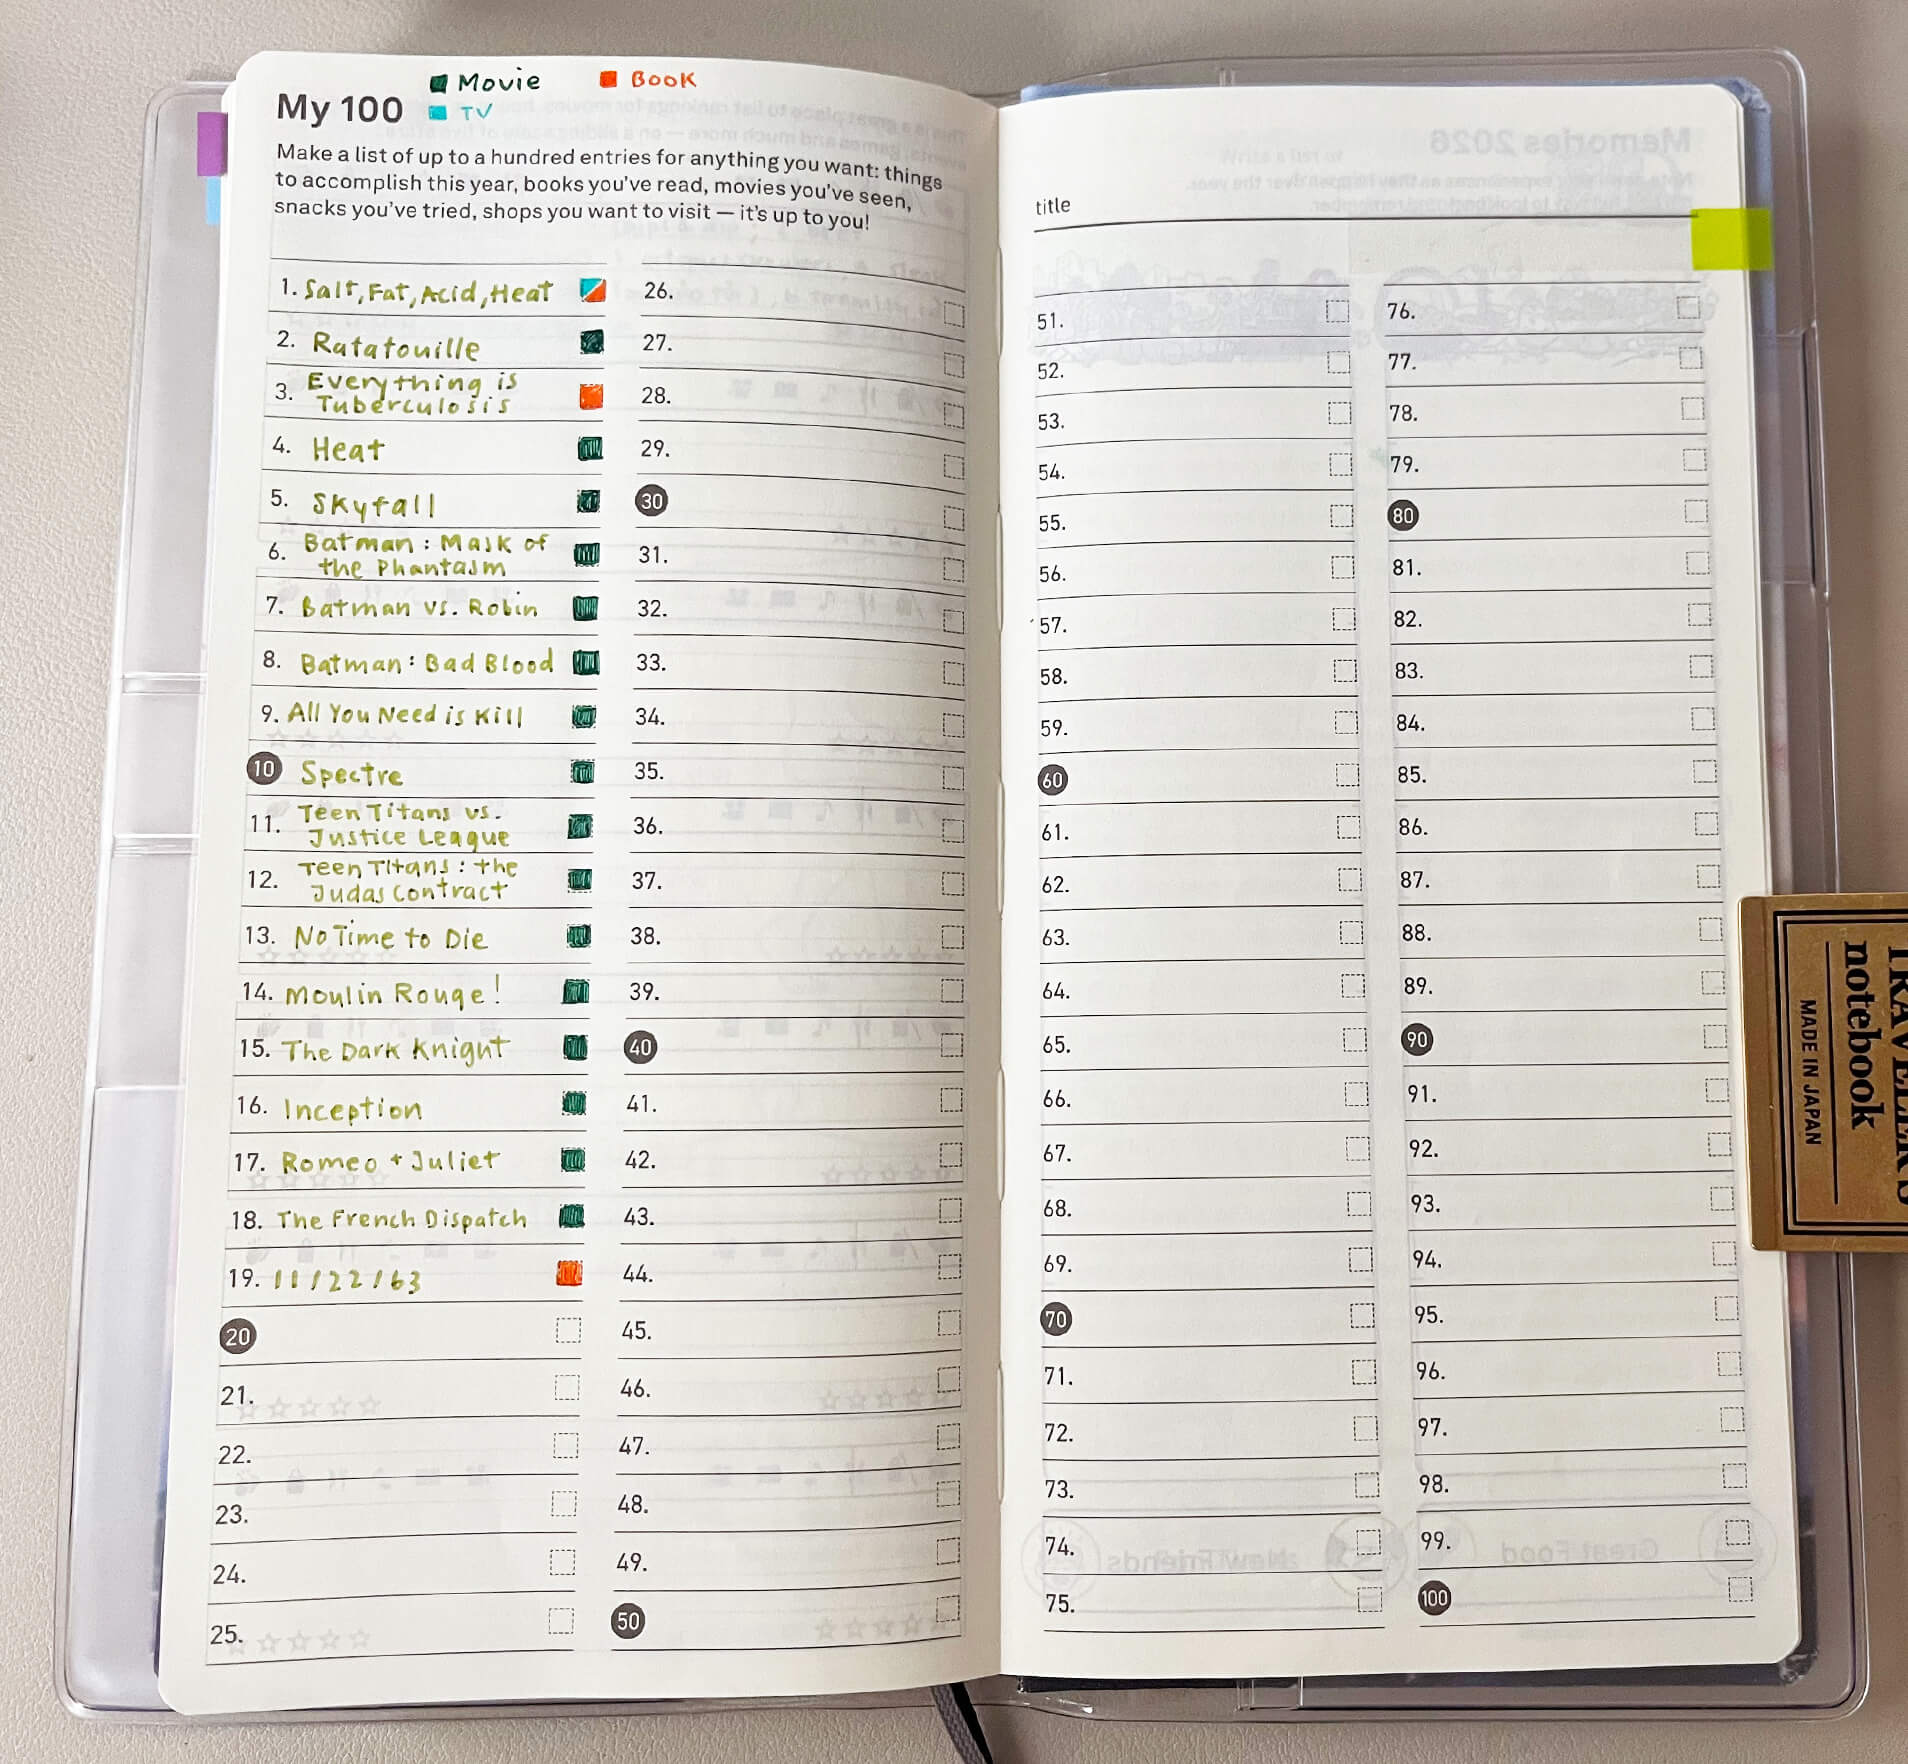 Movie
BOOK
My 100
TV
Make a list of up to a hundred entries for anything you want: things
to accomplish this year, books you've read, movies you've seen,
snacks you've tried, shops you want to visit — it's up to you!
1. Salt, Fat, Acid, Heat
2. Ratatouille
3. Everything is
Tuberculosis
4. Heat
5. Skyfall
6. Batman: Mask of
the Phantasm
7. Batman vs. Robin
8. Batman: Bad Blood
9. All You Need is Kill
10 Spectre
11. Teen Titans vs.
Justice League
12. Teen Titans: the
Judas Contract
13. No Time to Die
14. Moulin Rouge!
15. The Dark Knight
16. Inception
17. Romeo + Juliet
18. The French Dispatch
19. 11/22/63
20
21.
22.
23.
24.
25.
26.
27.
28.
29.
30
31.
32.
33.
34.
35.
36.
37.
38.
39.
40
41.
42.
43.
44.
45.
46.
47.
48.
49.
50
title
51.
52.
53.
54.
55.
56.
57.
58.
59.
60
61.
62.
63.
64.
65.
66.
67.
68.
69.
70
71.
72.
73.
74.
75.
76.
77.
78.
79.
80
81.
82.
83.
84.
85.
86.
87.
88.
89.
90
91.
92.
93.
94.
95.
96.
97.
98.
99.
100
Memories 2026
New Friends
Great Food
TRAVELER'S
notebook
MADE IN JAPAN